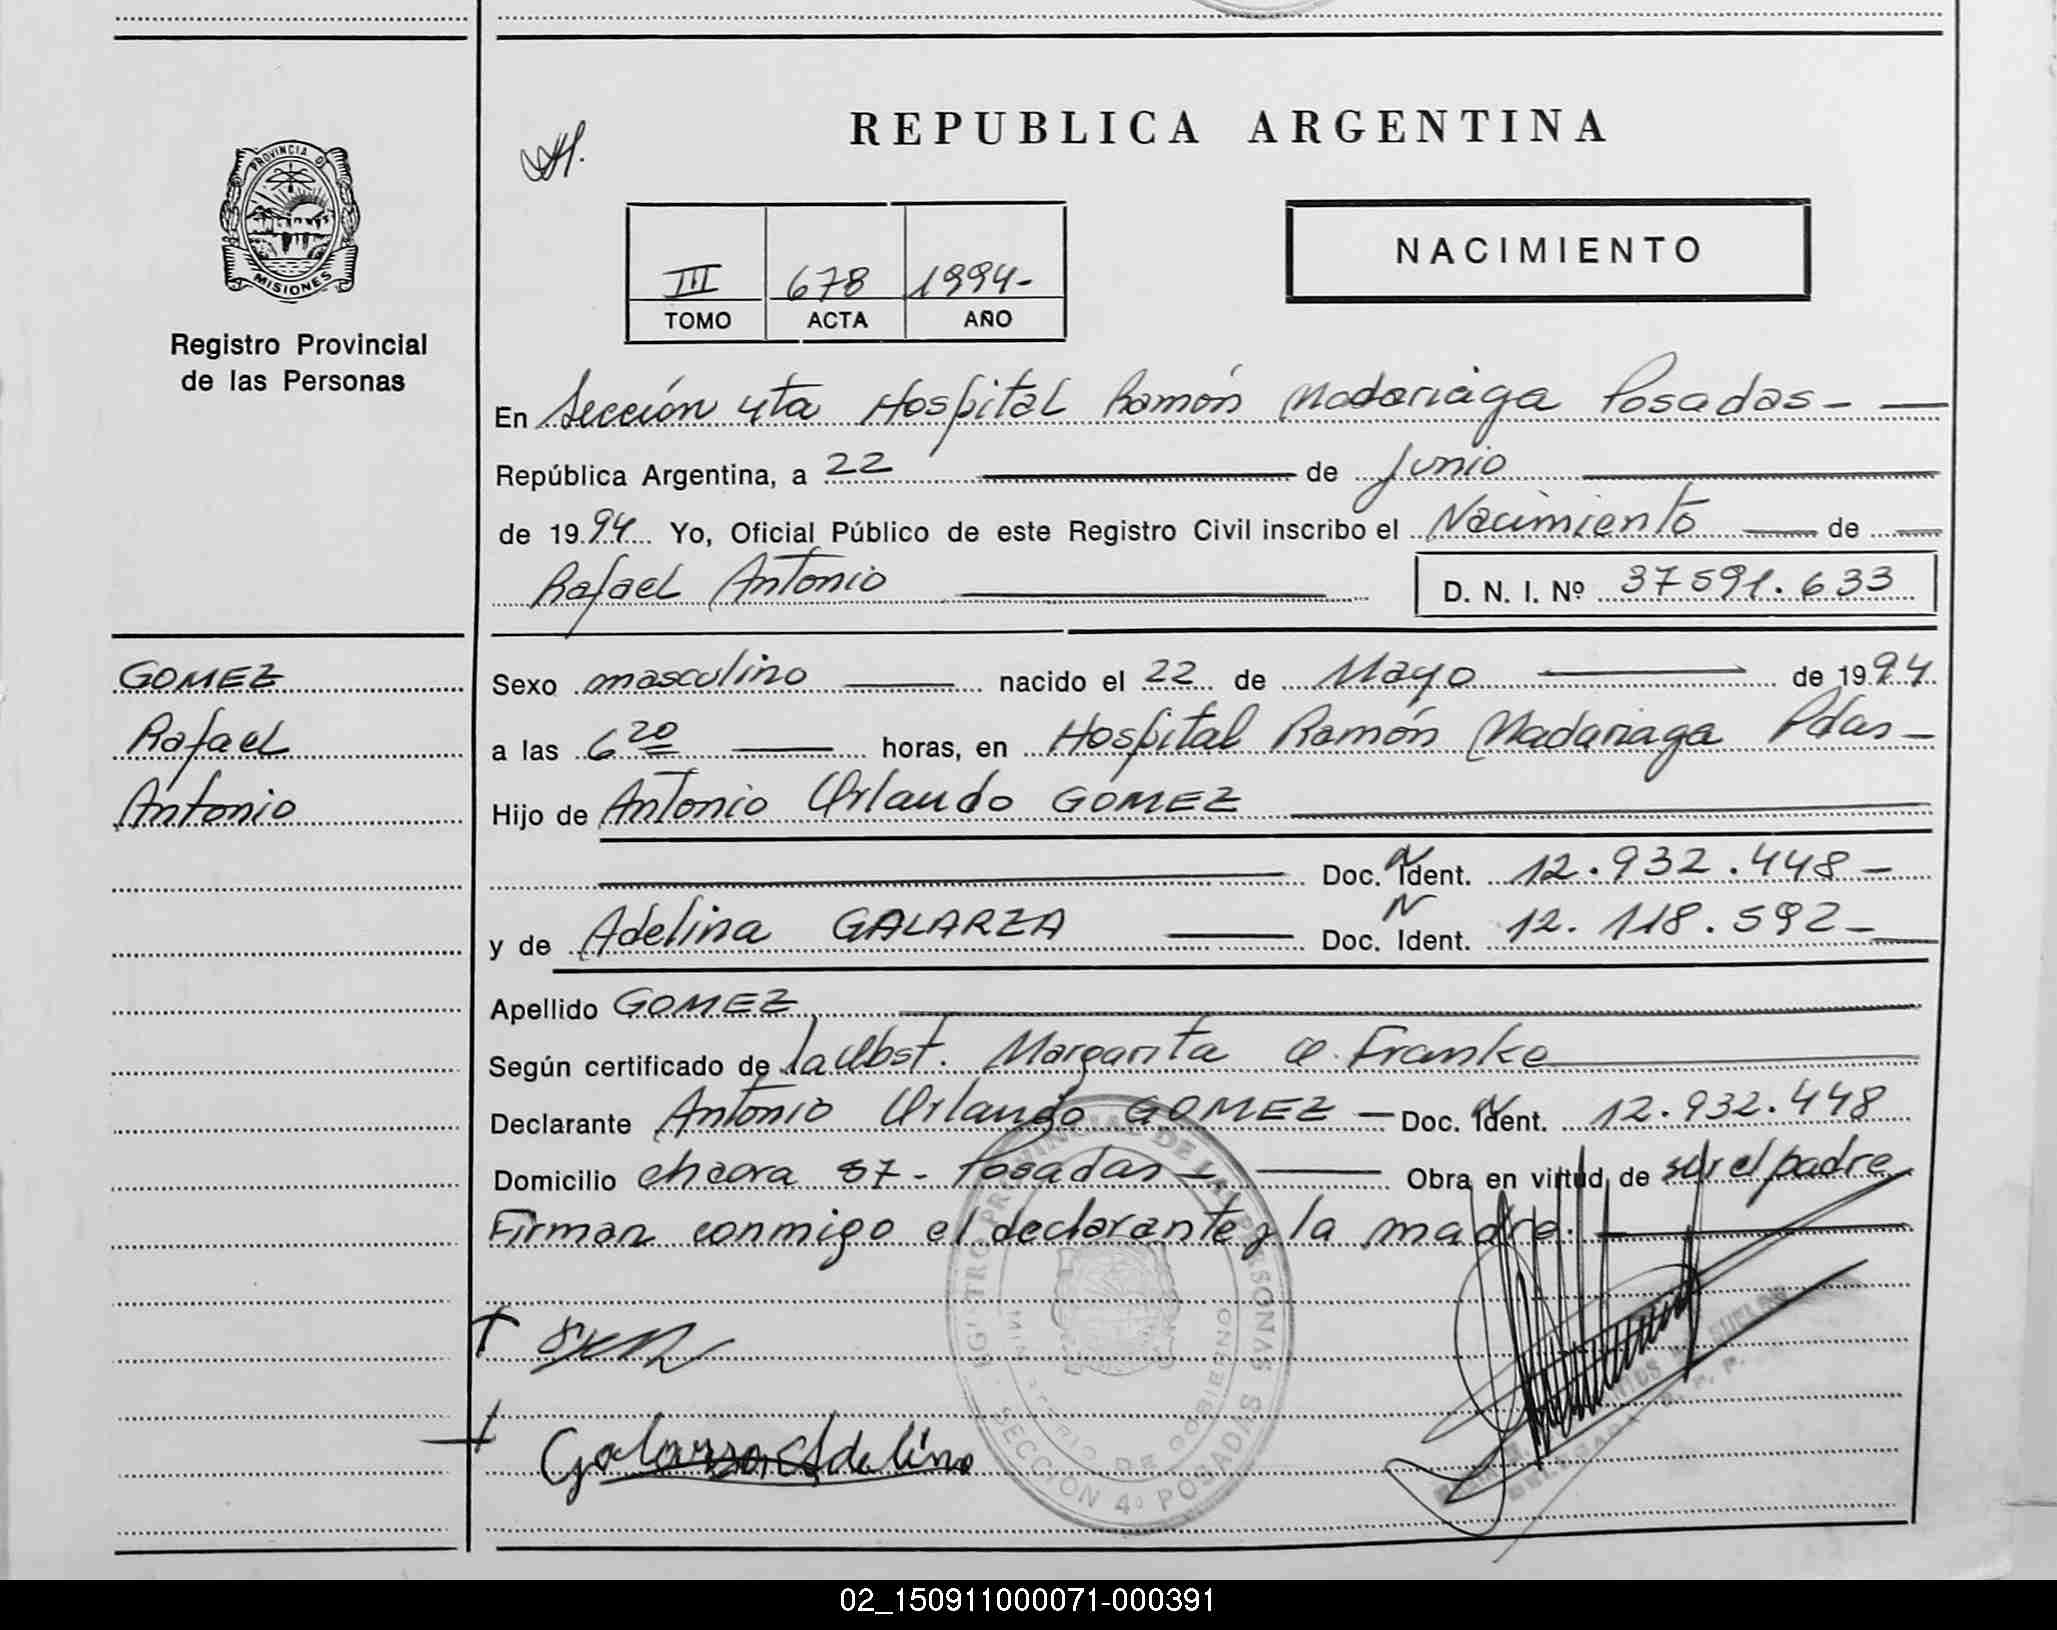 REPUBLICA ARGENTINA
PROVINCIA DE
MISIONES
Registro Provincial
de las Personas
NACIMIENTO
III 678 1994-
TOMO ACTA AÑO
En Sección 4ta Hospital Ramón Madariaga Posadas-
República Argentina, a 22 de Junio
de 1994 Yo, Oficial Público de este Registro Civil inscribo el Nacimiento de
Rafael Antonio D. N. I. Nº 37591.633
GOMEZ
Rafael
Antonio
Sexo masculino nacido el 22 de Mayo de 1994
a las 6 20 horas, en Hospital Ramón Madariaga Pdas-
Hijo de Antonio Orlando GOMEZ
Doc. N Ident. 12.932.448-
y de Adelina GALARZA Doc. N Ident. 12.118.592-
Apellido GOMEZ
Según certificado de la Obst. Margarita O. Franke
Declarante Antonio Orlando GOMEZ - Doc. N Ident. 12.932.448
Domicilio chacra 87- Posadas- Obra en virtud de ser el padre
Firman conmigo el declarante y la madre.
Galarza Adelina
REGISTRO PROVINCIAL DE LAS PERSONAS
MINISTERIO DE GOBIERNO
SECCION 4º POSADAS
02_150911000071-000391